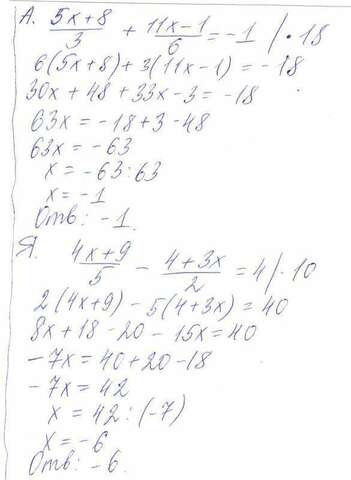 А. (5x+8)/3 + (11x-1)/6 = -1 /·18
6(5x+8)+3(11x-1) = -18
30x + 48 + 33x - 3 = -18
63x = -18+3-48
63x = -63
x = -63:63
x = -1
Отв: -1.
Я. (4x+9)/5 - (4+3x)/2 = 4/·10
2(4x+9) - 5(4+3x) = 40
8x+18-20-15x=40
-7x = 40+20-18
-7x = 42
x = 42:(-7)
x = -6
Отв: -6.